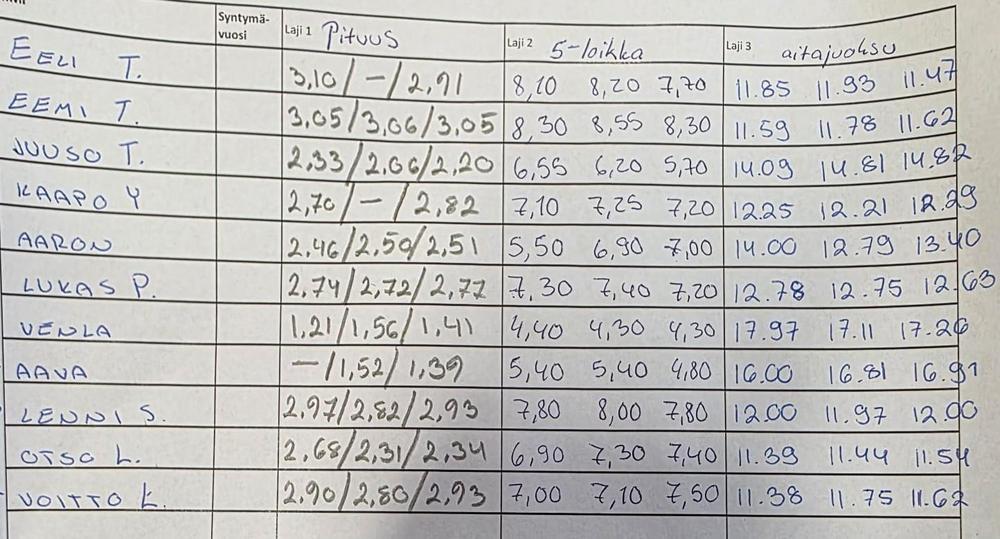 Syntymä-
vuosi
Laji 1 Pituus
Laji 2 5-loikka
Laji 3 aitajuoksu
EELI T. 3,10/-/2,91 8,10 8,20 7,70 11.85 11.93 11.47
EEMI T. 3,05/3,06/3,05 8,30 8,55 8,30 11.59 11.78 11.62
JUUSO T. 2,33/2,06/2,20 6,55 6,20 5,70 14.09 14.81 14.82
KAAPO Y 2,70/-/2,82 7,10 7,25 7,20 12.25 12.21 12.29
AARON 2,46/2,50/2,51 5,50 6,90 7,00 14.00 12.79 13.40
LUKAS P. 2,74/2,72/2,77 7,30 7,40 7,20 12.78 12.75 12.63
VENLA 1,21/1,56/1,41 4,40 4,30 4,30 17.97 17.11 17.26
AAVA -/1,52/1,39 5,40 5,40 4,80 16.00 16.81 16.91
LENNI S. 2,97/2,82/2,93 7,80 8,00 7,80 12.00 11.97 12.00
OTSO L. 2,68/2,31/2,34 6,90 7,30 7,40 11.39 11.44 11.54
VOITTO L. 2,90/2,80/2,93 7,00 7,10 7,50 11.38 11.75 11.62